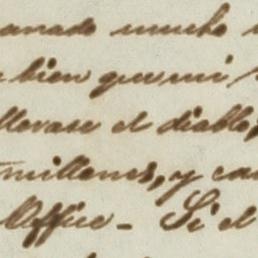 anado mucho
bien que mi
llevase el diablo,
millones, y ca
Office - Si el